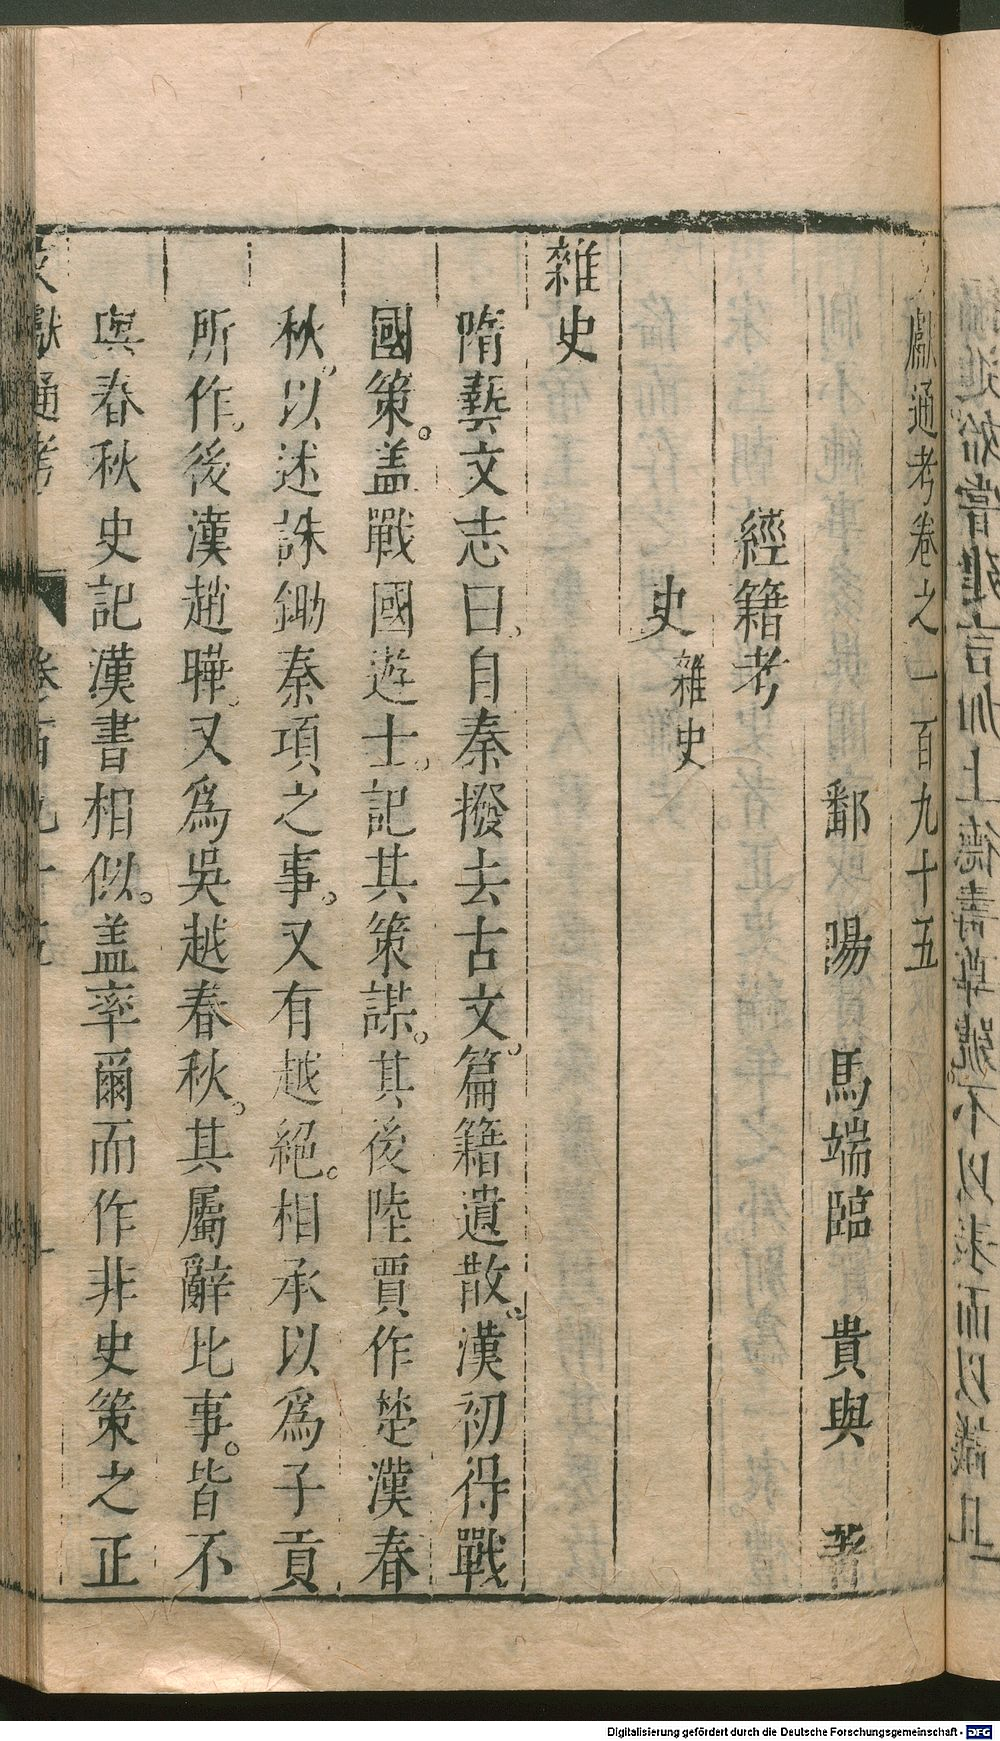 獻通考卷之一百九十五
鄱陽馬端臨貴與著
經籍考
史雜史
雜史
隋藝文志曰自秦撥去古文。篇籍遺散。漢初得戰
國策。盖戰國遊士。記其策謀。其後陸賈作楚漢春
秋。以述誅鋤秦項之事。又有越絕。相承以爲子貢
所作。後漢趙曄。又爲吳越春秋。其屬辭比事。皆不
與春秋史記漢書相似。盖率爾而作非史策之正
獻通考 卷百九十五
Digitalisierung gefördert durch die Deutsche Forschungsgemeinschaft - DFG